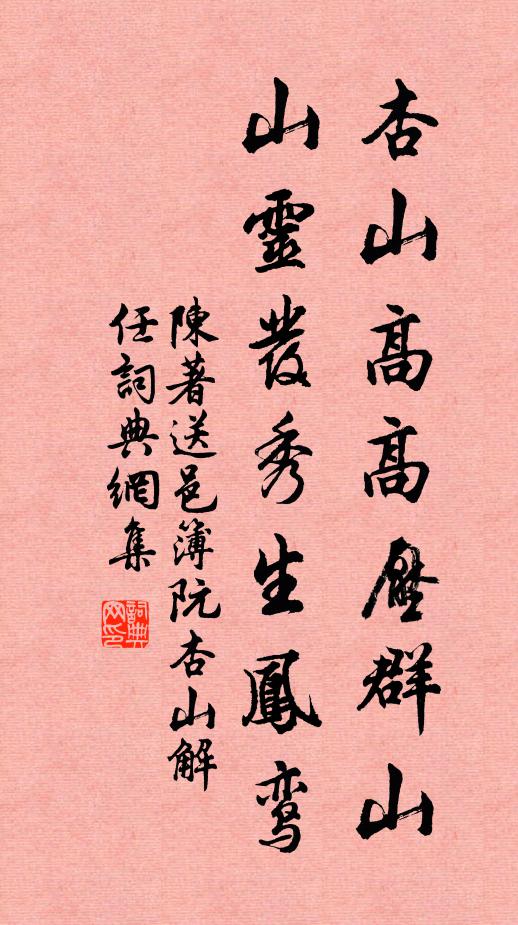 杏山高高壓群山
山靈發秀生鳳鸾
陳著送邑簿阮杏山解
任詞典網集
詞典
网印